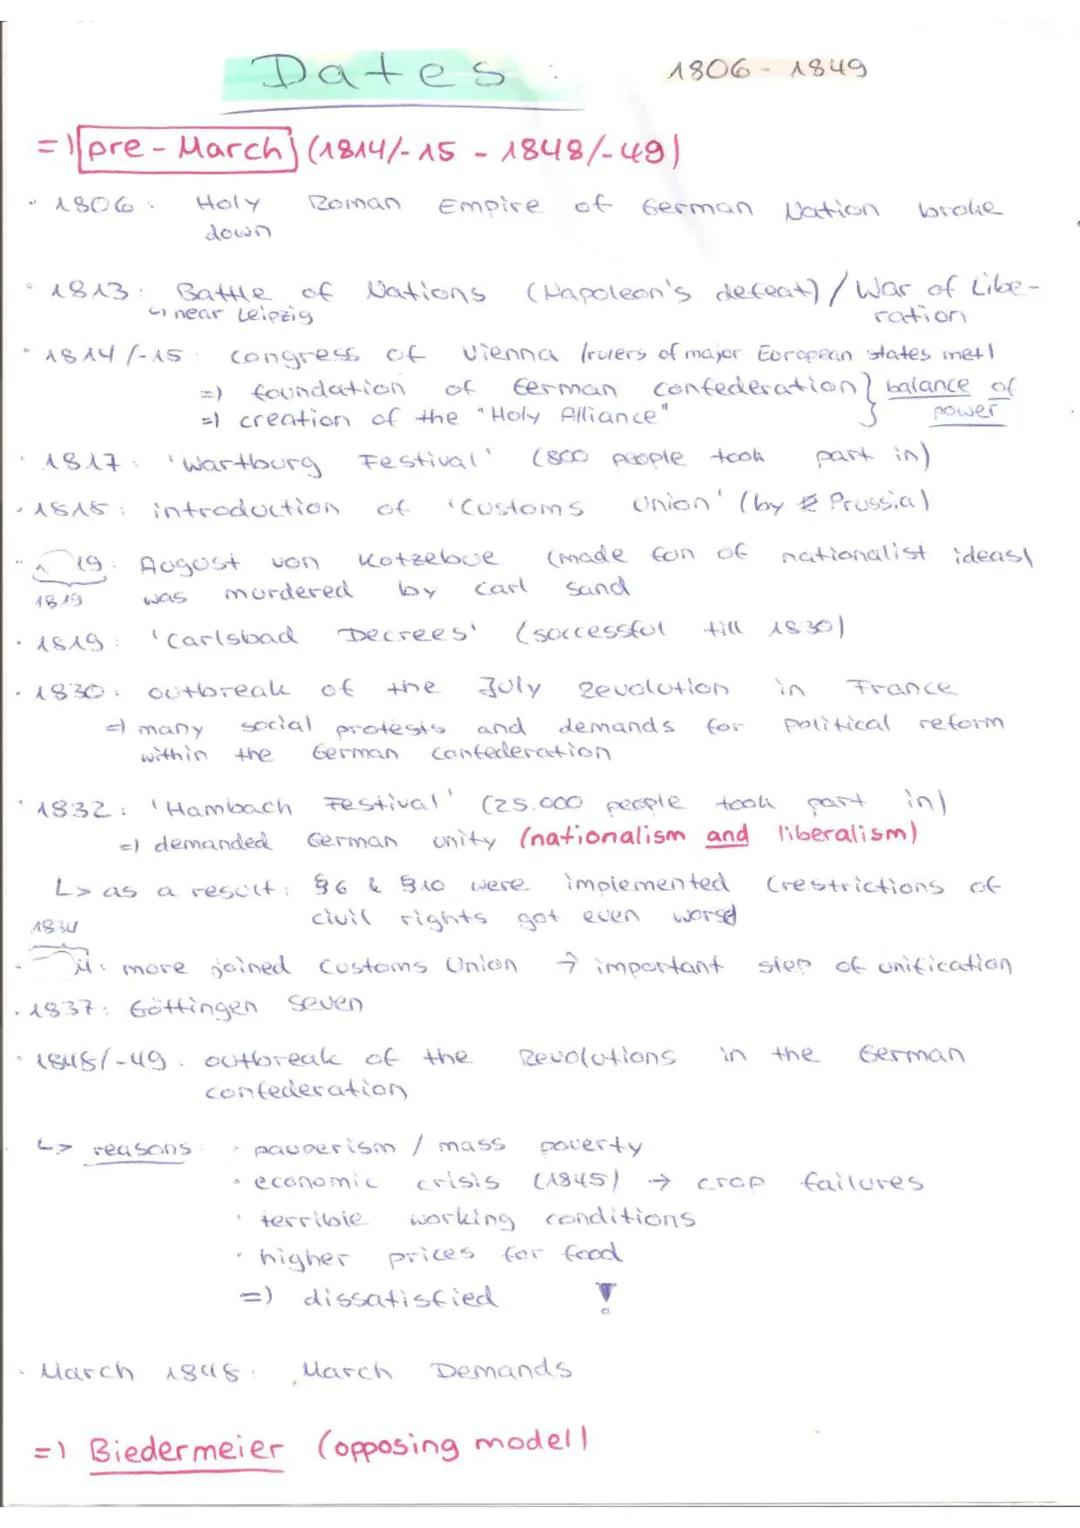 Dates : 1806 - 1849
=) pre - March (1814/-15 - 1848/-49)
· 1806 : Holy Roman Empire of German Nation broke
down
· 1813 : Battle of Nations (Napoleon's defeat) / War of Libe-
↳ near Leipzig ration
· 1814/-15 : Congress of Vienna (rulers of major European states met)
=) foundation of German confederation } balance of
=) creation of the "Holy Alliance" power
· 1817 : 'Wartburg Festival' (800 people took part in)
· 1818 : introduction of 'Customs Union' (by Prussia)
· 19 : August von Kotzebue (made fun of nationalist ideas)
1819 was murdered by Carl Sand
· 1819 : 'Carlsbad Decrees' (successful till 1830)
· 1830 : outbreak of the July Revolution in France
=) many social protests and demands for political reform
within the German confederation
· 1832 : 'Hambach Festival' (25.000 people took part in)
=) demanded German unity (nationalism and liberalism)
↳ as a result : §6 & §10 were implemented (restrictions of
civil rights got even worse)
1834
· : more joined Customs Union → important step of unification
· 1837 : Göttingen Seven
· 1848/-49 : outbreak of the Revolutions in the German
confederation
↳ reasons : · pauperism / mass poverty
· economic crisis (1845) → crop failures
· terrible working conditions
· higher prices for food
=) dissatisfied !
· March 1848 : March Demands
=) Biedermeier (opposing model)